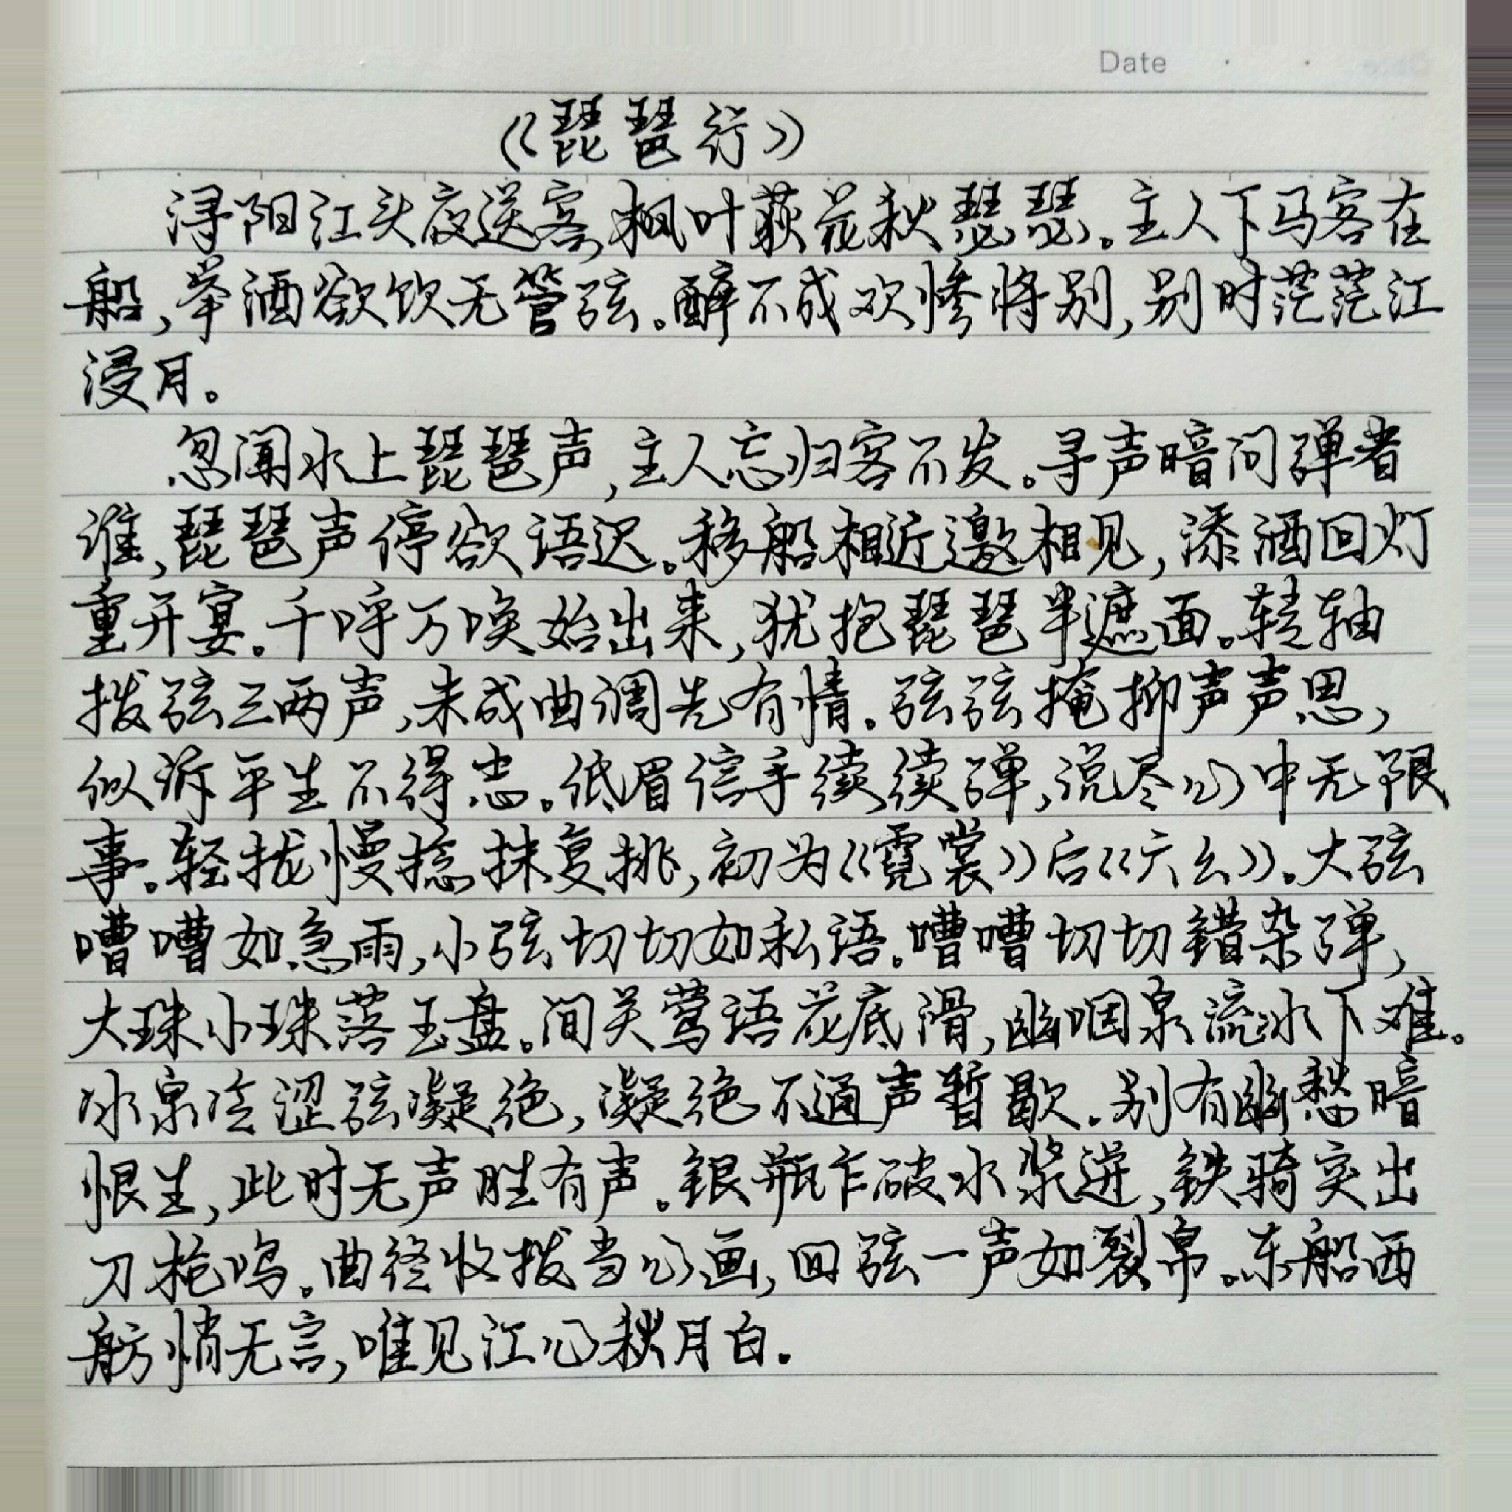 Date
《琵琶行》
浔阳江头夜送客,枫叶荻花秋瑟瑟。主人下马客在
船,举酒欲饮无管弦。醉不成欢惨将别,别时茫茫江
浸月。
忽闻水上琵琶声,主人忘归客不发。寻声暗问弹者
谁,琵琶声停欲语迟。移船相近邀相见,添酒回灯
重开宴。千呼万唤始出来,犹抱琵琶半遮面。转轴
拨弦三两声,未成曲调先有情。弦弦掩抑声声思,
似诉平生不得志。低眉信手续续弹,说尽心中无限
事。轻拢慢捻抹复挑,初为《霓裳》后《六幺》。大弦
嘈嘈如急雨,小弦切切如私语。嘈嘈切切错杂弹,
大珠小珠落玉盘。间关莺语花底滑,幽咽泉流冰下难。
冰泉冷涩弦凝绝,凝绝不通声暂歇。别有幽愁暗
恨生,此时无声胜有声。银瓶乍破水浆迸,铁骑突出
刀枪鸣。曲终收拨当心画,四弦一声如裂帛。东船西
舫悄无言,唯见江心秋月白。